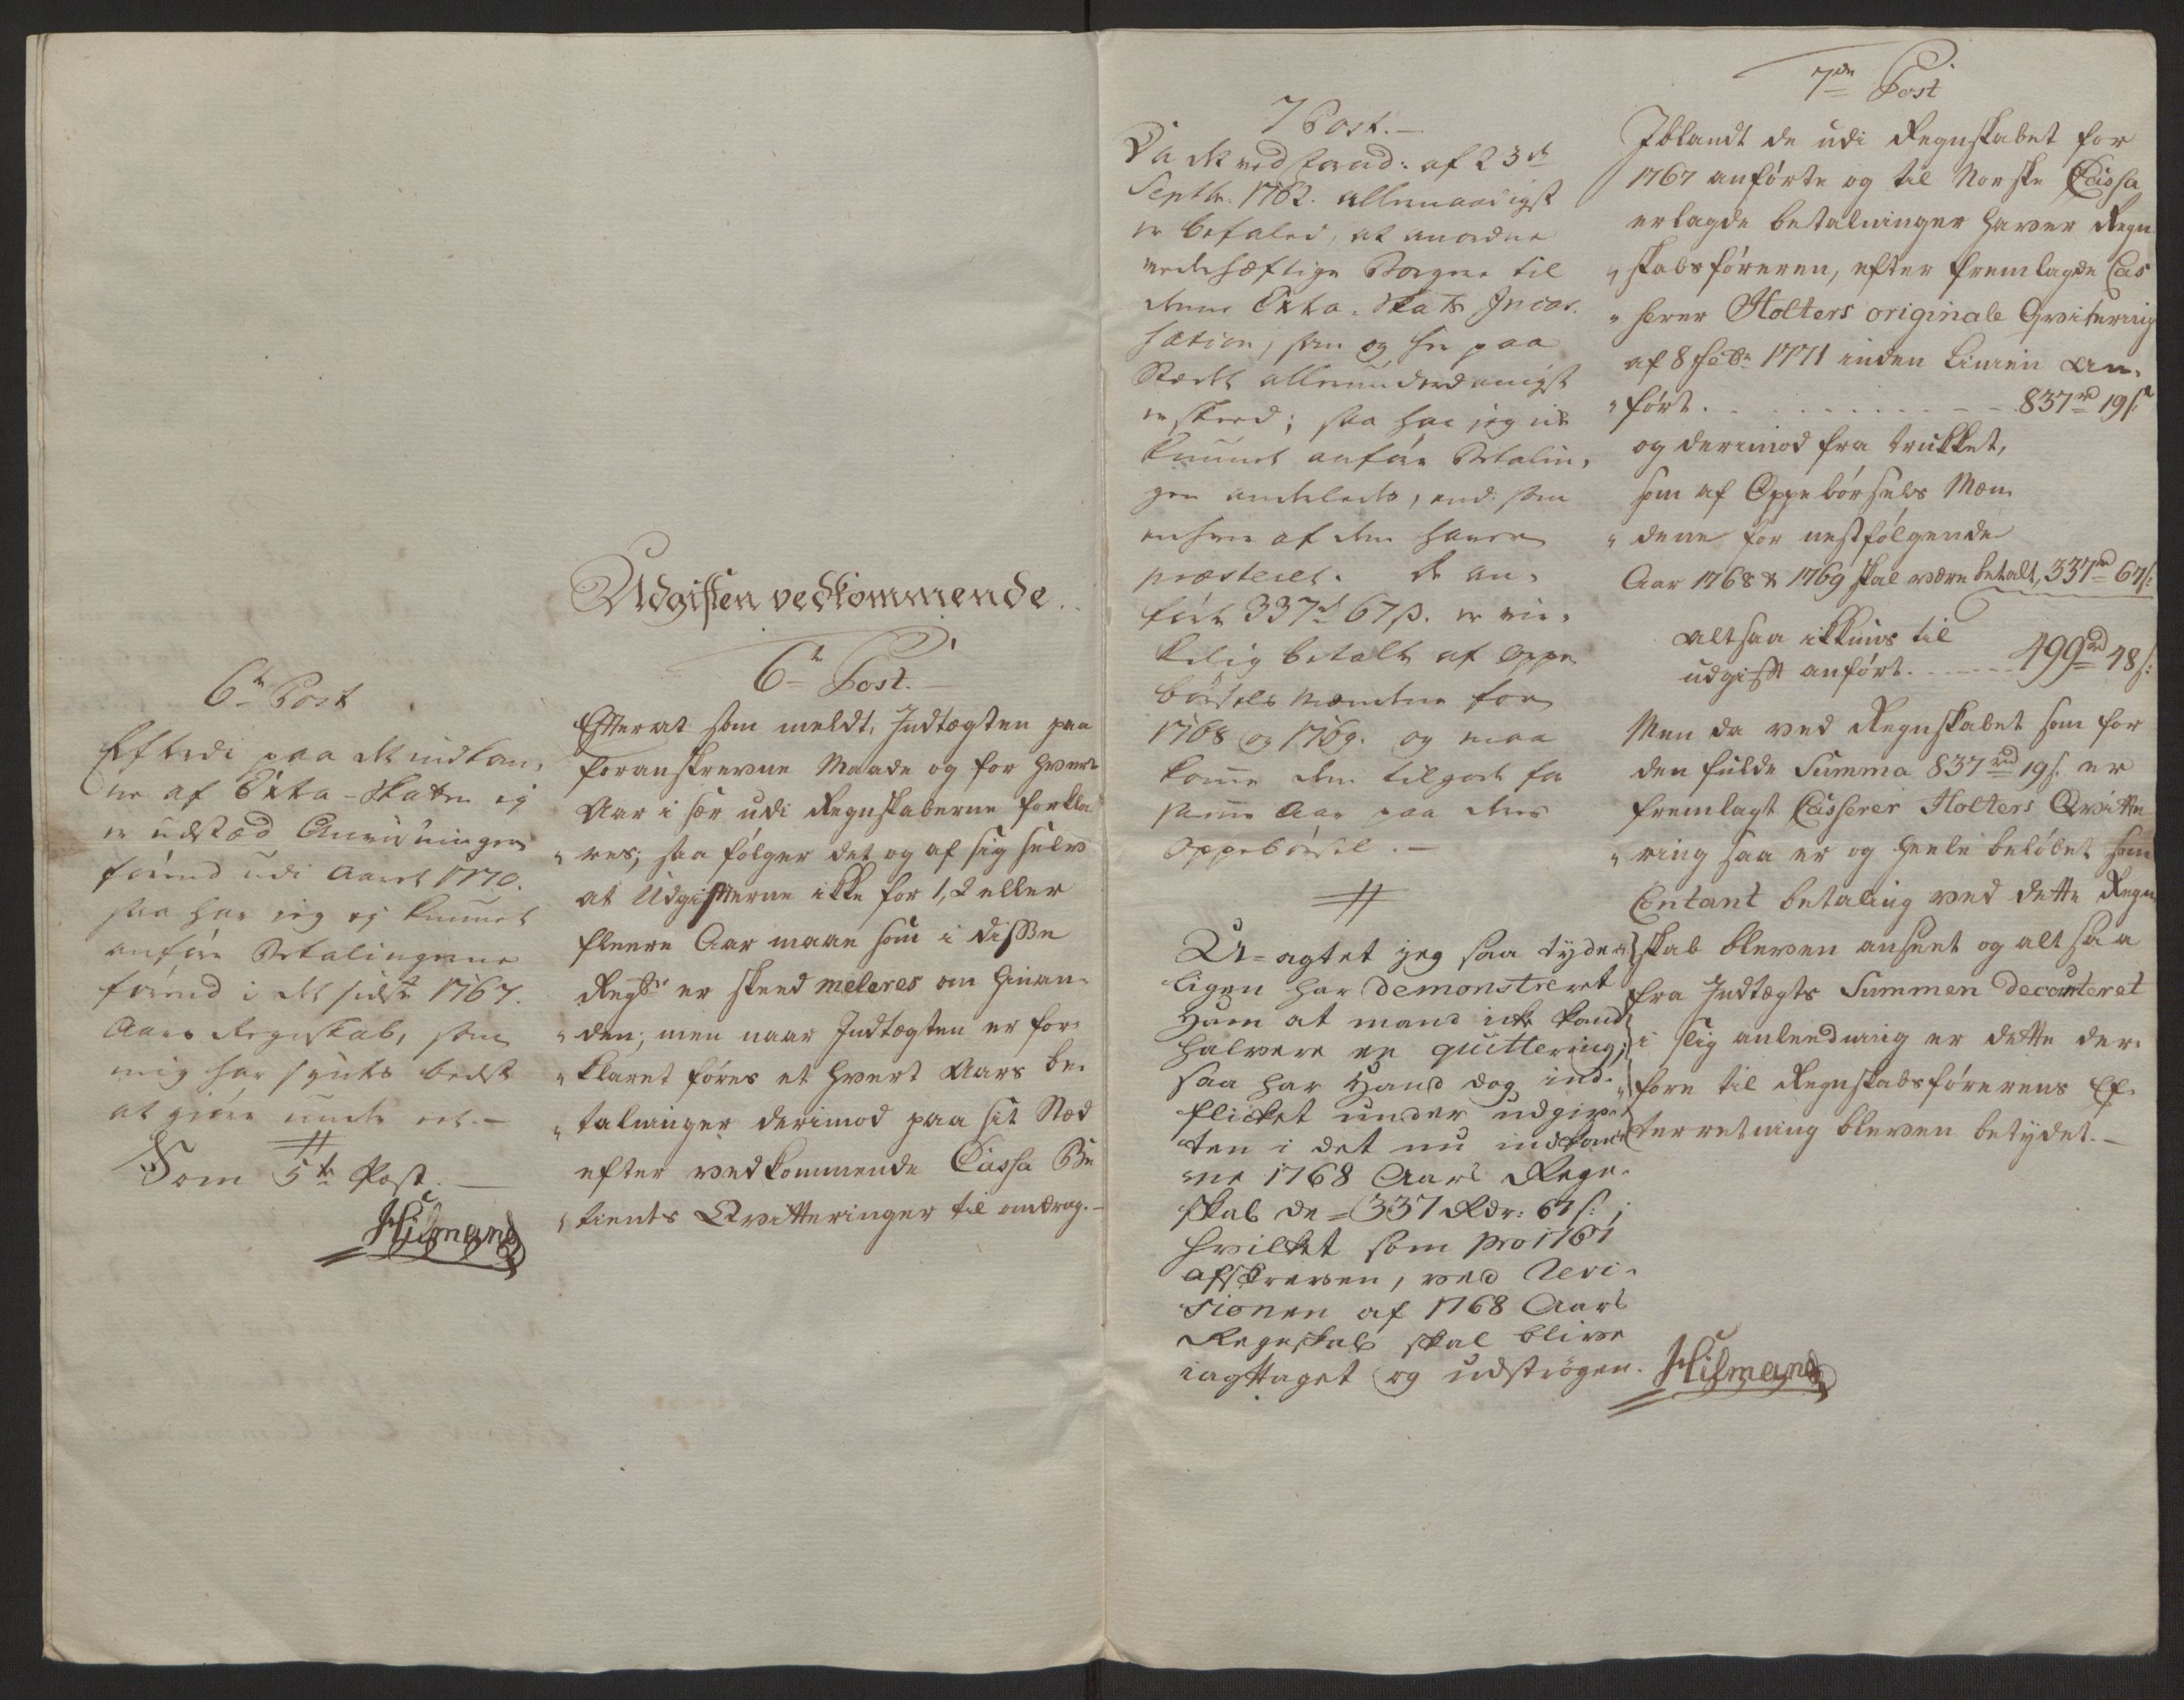 Udgiften vedkommende
6te Post
Efterdi paa det indkom-
ne af Extra-Skatten ej
er udstæd Anviisninger
førend udi Aaret 1770.
saa har jeg ej kunnet
anføre Betalingerne
førend i det sidste 1767.
Aars Regnskab, som
mig har syntes bedst
at giøre
Som 5te Post.
Hilmand
6te Post.
Efterat som meldt, Indtægten paa
foranskrevne Maade og for hvert
Aar i sær udi Regnskaberne forkla-
"res, saa følger det og af sig selv
at Udgifterne ikke for 1, 2 eller
fleere Aar maae som i disse
Regsk: er skeed meleres om hinan-
"den; men naar Indtægten er for-
"klaret føres et hvert Aars be-
"talninger derimod paa sit Sted
efter vedkommende Cassa Be-
"tients Qvitteringer til andrag.-
7 Post.-
Da det ved forord: af 23de
Septbr. 1762. allernaadigst
er befaled, at anordne
vederhæftige Borgere til
denne Extra-Skats Incas-
sation, som og her paa
Stedet allerunderdanigst
er skeed; saa har jeg ik
kunnet anføre Betalin-
gen anderledes, end som
enhver af dem haver
præsteret. De an-
førte 337rd 67 s. er vir-
kelig betalt af Oppe-
børsels Mændene for
1768 og 1769. og maa
komme dem tilgode for
samme Aar paa deres
Oppebørsel.-
U-agtet jeg saa tyde-
ligen har demonstreret
Ham at mand icke kand
halvere en quittering;
saa har Hand dog ind-
flicket under udgiv-
ten i det nu indkom-
ne 1768 Aars Regn-
skab de = 337 Rdr: 67 s:;
hvilket som pro 1767
afskreven, ved Revi-
sionen af 1768 Aars
Regnskab skal blive
iagttaget og udstrøgen.
Hilmand
7de Post
Iblandt de udi Regnskabet for
1767 anførte og til Norske Cassa
erlagde betalninger haver Regn-
"skabsføreren, efter fremlagde Cas-
"serer Holters originale Qvitering
af 8 Febr. 1771 inden Linien an-
"ført. . . . . . . . . 837rd 19 s.
og derimod fra trukket,
som af Oppebørsels Mæn-
"dene for nestfølgende
Aar 1768 & 1769 skal være betalt, 337rd 67 s:
altsaa ikkuns til
udgift anført. . . . . 499rd 48 s:
Men da ved Regnskabet som for
den fulde Summa 837rd 19 s. er
fremlagt Casserer Holters Qvitte-
"ring saa er og heele beløbet som
Contant betaling ved dette Regn-
skab bleven anseet og altsaa
fra Indtægts Summen decourteret
i slig anleedning er dette der-
"fore til Regnskabsførerens Ef-
"terretning bleven betydet.-